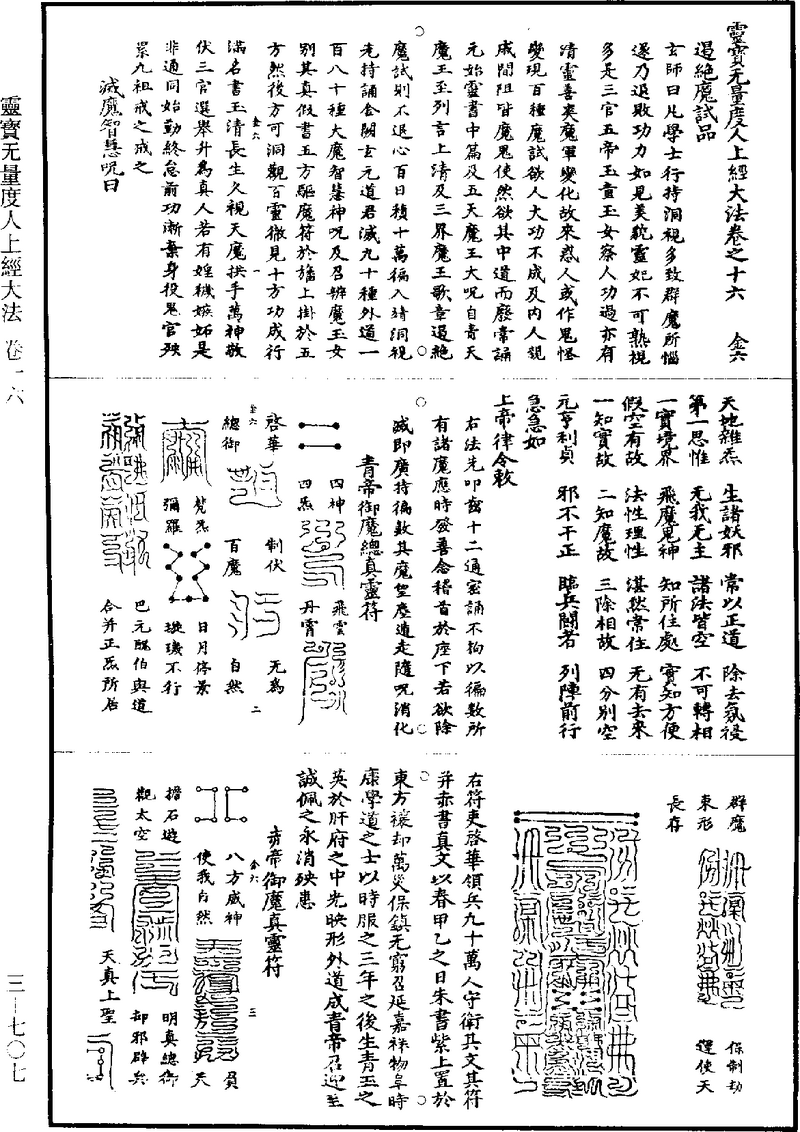 靈寶无量度人上經大法卷之十六 金六
遏絕魔試品
玄師曰凡學士行持洞視多致群魔所惱
遂乃退敗功力如見美貌靈妃不可熟視
多是三官五帝玉童玉女察人功過亦有
清靈善爽魔軍變化故來惑人或作鬼怪
變現百種魔試欲人大功不成及內人親
戚間阻皆魔鬼使然欲其中道而廢常誦
元始靈書中篇及五天魔王大呪自青天
魔王至列言上清及三界魔王歌章遏絕
魔試則不退心百日積十萬徧入靖洞視
先持誦金闕玄元道君滅九十種外道一
百八十種大魔智慧神呪及召辨魔玉女
別其真假書五方驅魔符於旛上掛於五
方然後方可洞觀百靈徹見十方功成行
金六 一
滿名書玉清長生久視天魔拱手萬神敬
伏三官選舉升為真人若有婬機嫉妬是
非通同始勤終怠前功漸棄身役鬼官殃
累九祖戒之戒之
滅魔智慧呪曰
天地雜炁 生諸妖邪 常以正道 除去氛祲
第一思惟 无我无主 諸法皆空 不可轉相
一實境界 飛魔鬼神 知所住處 實知方便
假空有故 法性理性 湛然常住 无有去來
一知實故 二知魔故 三除相故 四分別空
元亨利貞 邪不干正 臨兵鬪者 列陣前行
急急如
上帝律令敕
右法先叩齒十二通密誦不拘以徧數所
有諸魔應時發善念稽首於座下若欲除
滅即廣持徧數其魔望塵遁走隨呪消化
青帝御魔總真靈符
四神 飛雲
四炁 丹霄
啓華 制伏 无為
金六 二
總御 百魔 自然
梵炁 日月停景
彌羅 璇璣不行
巴元醜伯與道
合并正炁所居
群魔 保制劫
束形 運使天
長存
右符吏啓華領兵九十萬人守衛其文其符
并赤書真文以春甲乙之日朱書紫上置於
東方禳却萬災保鎮无窮召延嘉祥物阜時
康學道之士以時服之三年之後生青玉之
英於肝府之中光映形外道成青帝召迎至
誠佩之永消殃患
赤帝御魔真靈符
金六 三
八方威神 負
使我自然 天
擔石遊 明真總御
觀太空 却邪辟兵
天真上聖
靈寶无量度人上經大法 卷一六
三—七〇七